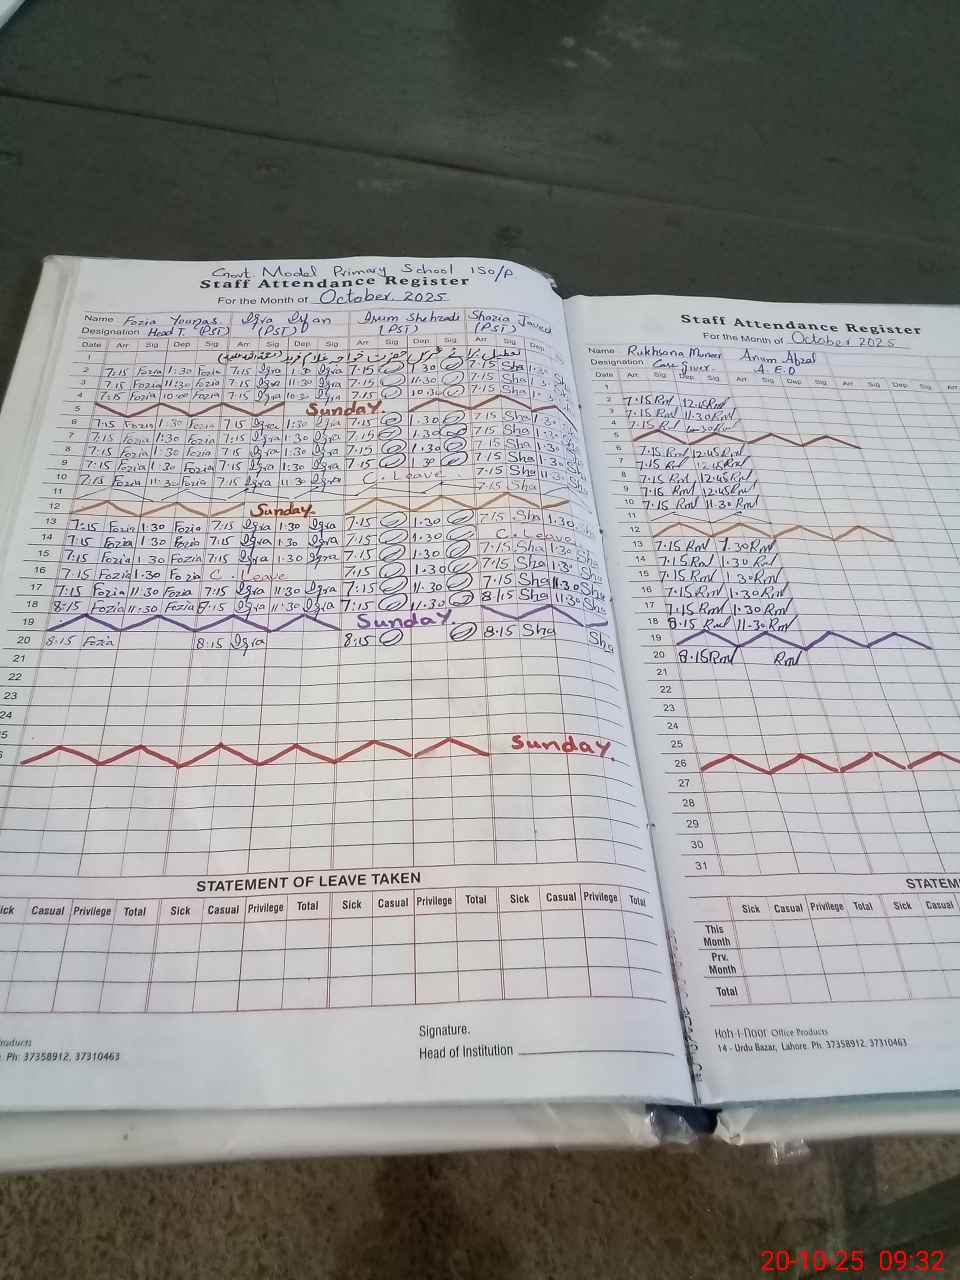 Govt. Model Primary School 150/P
Staff Attendance Register
For the Month of October. 2025
Name Fozia Younas Iqra Irfan Irum Shehzadi Shazia Javed
Designation Head T. (PST) (PST) (PST) (PST)
Date Arr Sig Dep Sig Arr Sig Dep Sig Arr Sig Dep Sig Arr Sig Dep
1
2 7:15 Fozia 1:30 Fozia 7:15 Iqra 1:30 Iqra 7.15 1.30 7.15 Sha 1:30 Sh
3 7:15 Fozia 11:30 Fozia 7:15 Iqra 11:30 Iqra 7.15 11.30 7.15 Sha
4 7:15 Fozia 10:00 Fozia 7:15 Iqra 10:30 Iqra 7.15 10.30 7.15 Sha
5 Sunday.
6 7:15 Fozia 1:30 Fozia 7:15 Iqra 1:30 Iqra 7.15 1.30 7.15 Sha
7 7:15 Fozia 1:30 Fozia 7:15 Iqra 1:30 Iqra 7.15 1.30 7.15 Sha
8 7:15 Fozia 1:30 Fozia 7:15 Iqra 1:30 Iqra 7.15 1.30 7.15 Sha
9 7:15 Fozia 1:30 Fozia 7:15 Iqra 1:30 Iqra 7.15 1.30 7.15 Sha
10 7:15 Fozia 11:30 Fozia 7:15 Iqra 11:30 Iqra C. Leave 7.15 Sha 11:30
11 7.15 Sha
12 Sunday.
13 7:15 Fozia 1:30 Fozia 7:15 Iqra 1:30 Iqra 7.15 1.30 7.15 Sha 1:30
14 7:15 Fozia 1:30 Fozia 7:15 Iqra 1:30 Iqra 7.15 1.30 C. Leave
15 7:15 Fozia 1:30 Fozia 7:15 Iqra 1:30 Iqra 7.15 1.30 7.15 Sha 1:30 Sh
16 7:15 Fozia 1:30 Fozia C. Leave 7.15 1.30 7.15 Sha 1:30 Sh
17 7:15 Fozia 11:30 Fozia 7:15 Iqra 11:30 Iqra 7.15 11.30 7.15 Sha 11:30 Sha
18 8:15 Fozia 11:30 Fozia 8:15 Iqra 11:30 Iqra 7:15 11.30 8:15 Sha 11:30 Sha
19 Sunday.
20 8:15 Fozia 8:15 Iqra 8:15 8:15 Sha Sha
21
22
23
24
Sunday.
STATEMENT OF LEAVE TAKEN
Sick Casual Privilege Total Sick Casual Privilege Total Sick Casual Privilege Total Sick Casual Privilege Total
Signature.
Head of Institution
Products
Ph: 37358912, 37310463
Staff Attendance Register
For the Month of October 2025
Name Rukhsana Muneer Anum Afzal
Designation Care giver. A.E.O
Date Arr Sig Dep Sig Arr Sig Dep Sig Arr Sig Dep Sig Arr
1
2 7.15 Rml 12.15 Rml
3 7.15 Rml 11.30 Rml
4 7.15 Rml
5
6 7.15 Rml 12.45 Rml
7 7.15 Rml 12.45 Rml
8 7.15 Rml 12.45 Rml
9 7.15 Rml 12.45 Rml
10 7.15 Rml 11.30 Rml
11
12
13 7.15 Rml 1.30 Rml
14 7.15 Rml 1.30 Rml
15 7.15 Rml 1.30 Rml
16 7.15 Rml 1.30 Rml
17 7.15 Rml 1.30 Rml
18 8.15 Rml 11.30 Rml
19
20 8.15 Rml Rml
21
22
23
24
25
26
27
28
29
30
31
STATEM
Sick Casual Privilege Total Sick Casual
This Month
Prv. Month
Total
Koh-i-Noor Office Products
14 - Urdu Bazar, Lahore. Ph: 37358912, 37310463
20-10-25 09:32